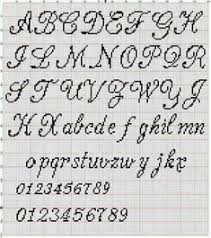 ABCDEFGH
ILMNOPQR
STUVZWYJ
KXabcdefghilmn
opqrstuvzwyjkx
0123456789
0123456789